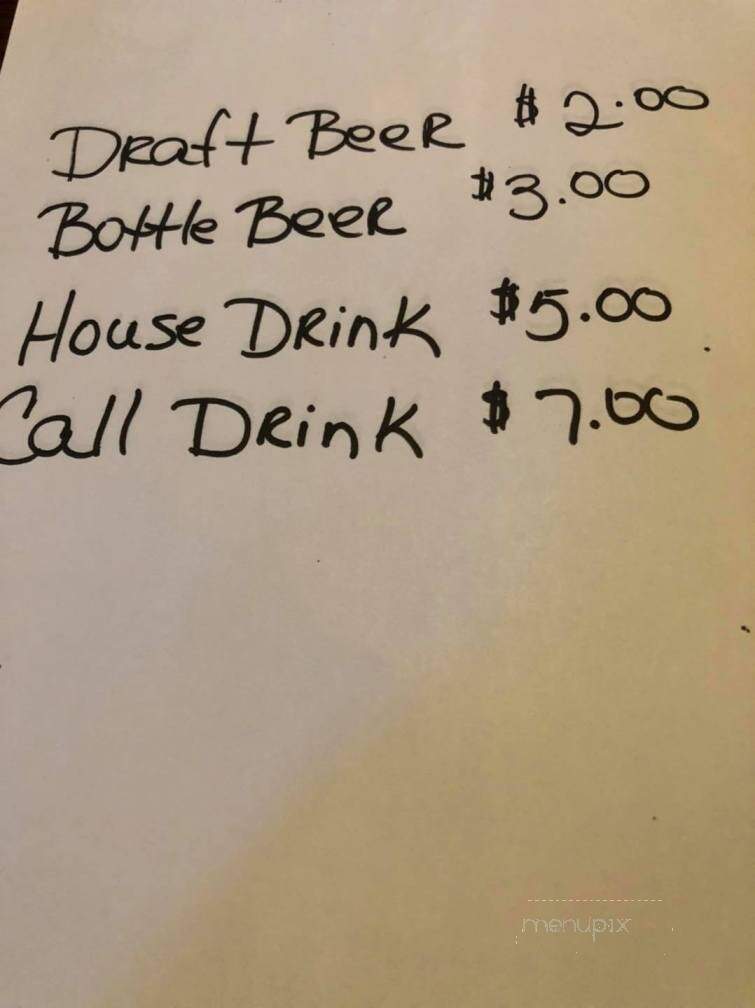 Draft Beer $2.00
Bottle Beer $3.00
House Drink $5.00
Call Drink $7.00
menupix